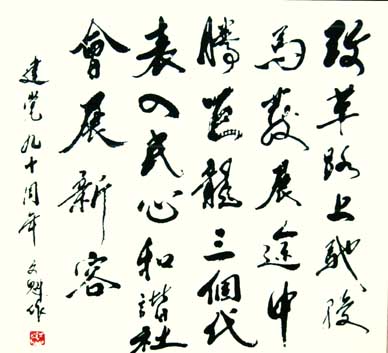 改革路上馳駿
馬發展途中
騰蓝龍三個代
表入民心和諧社
會展新容
建党九十周年 文魁作